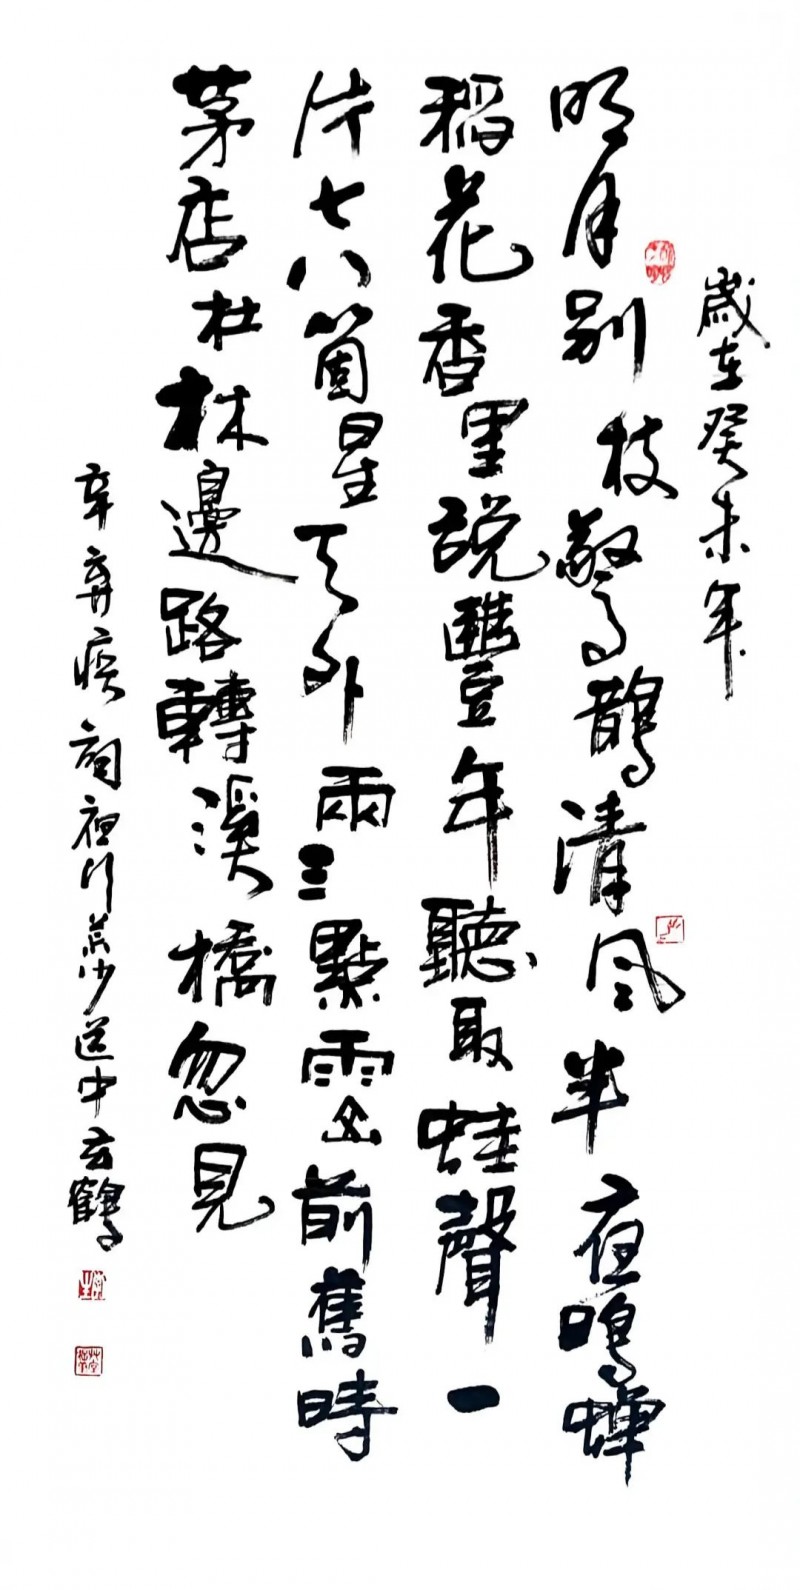 歲在癸未年
明月別枝驚鵲清風半夜鳴蟬
稻花香里說豐年聽取蛙聲一
片七八箇星天外兩三點雨山前舊時
茅店社林邊路轉溪橋忽見
辛弃疾詞夜行黃沙道中鶴